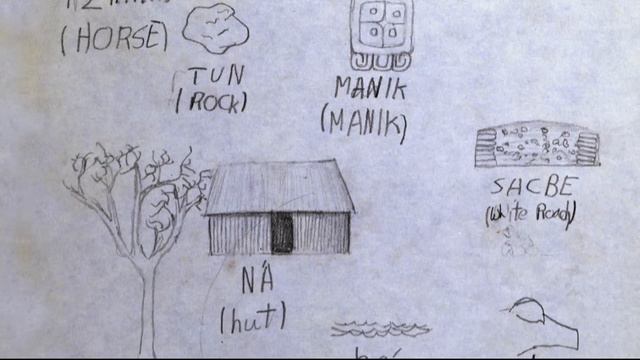 (HORSE)
TUN
(ROCK)
MANIK
(MANIK)
SACBE
(White Road)
NÁ
(hut)